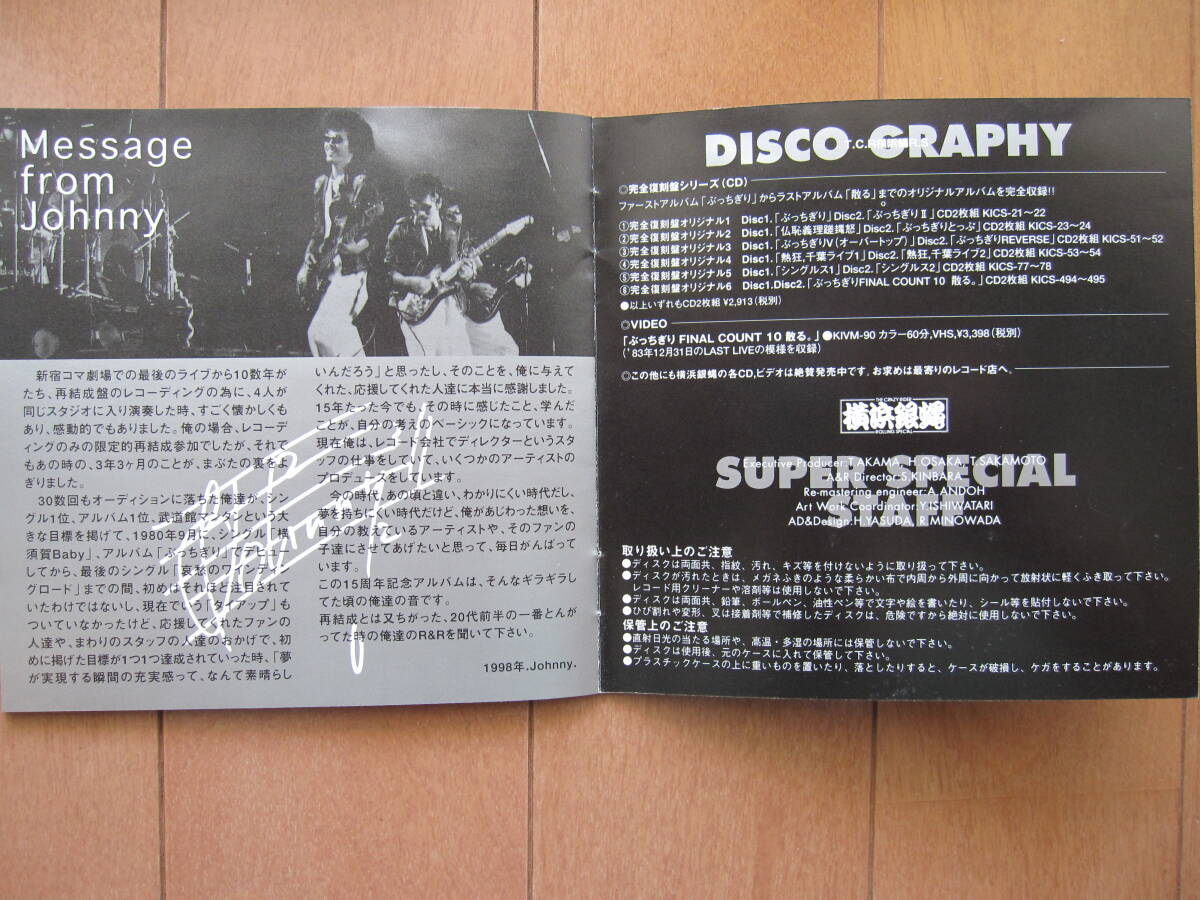 Message
from
Johnny
新宿コマ劇場での最後のライブから10数年が
たち、再結成盤のレコーディングの為に、4人が
同じスタジオに入り演奏した時、すごく懐かしくも
あり、感動的でもありました。俺の場合、レコーデ
ィングのみの限定的再結成参加でしたが、それで
もあの時の、3年3ヶ月のことが、まぶたの裏をよ
ぎりました。
30数回もオーディションに落ちた俺達が、シン
グル1位、アルバム1位、武道館マンタンという大
きな目標を掲げて、1980年9月に、シングル「横
須賀Baby」、アルバム「ぶっちぎり」でデビュー
してから、最後のシングル「哀愁のワインディン
グロード」までの間、初めはそれほど注目されて
いたわけではないし、現在でいう「タイアップ」も
ついていなかったけど、応援してくれたファンの
人達や、まわりのスタッフの人達のおかげで、初
めに掲げた目標が1つ1つ達成されていった時、「夢
が実現する瞬間の充実感って、なんて素晴らし
いんだろう」と思ったし、そのことを、俺に与えて
くれた、応援してくれた人達に本当に感謝しました。
15年たった今でも、その時に感じたこと、学んだ
ことが、自分の考えのベーシックになっています。
現在俺は、レコード会社でディレクターというスタ
ッフの仕事をしていて、いくつかのアーティストの
プロデュースをしています。
今の時代、あの頃と違い、わかりにくい時代だし、
夢を持ちにくい時代だけど、俺があじわった想いを、
自分の教えているアーティストや、そのファンの
子達にさせてあげたいと思って、毎日がんばって
います。
この15周年記念アルバムは、そんなギラギラし
てた頃の俺達の音です。
再結成とは又ちがった、20代前半の一番とんが
ってた時の俺達のR&Rを聞いて下さい。
1998年.Johnny.
DISCO GRAPHY
◎完全復刻盤シリーズ(CD)
ファーストアルバム「ぶっちぎり」からラストアルバム「散る」までのオリジナルアルバムを完全収録!!
①完全復刻盤オリジナル1 Disc1.「ぶっちぎり」Disc2.「ぶっちぎりⅡ」CD2枚組 KICS-21〜22
②完全復刻盤オリジナル2 Disc1.「仏恥義理蹉䟽怒」Disc2.「ぶっちぎりとっぷ」CD2枚組 KICS-23〜24
③完全復刻盤オリジナル3 Disc1.「ぶっちぎりV(オーバートップ)」Disc2.「ぶっちぎりREVERSE」CD2枚組 KICS-51〜52
④完全復刻盤オリジナル4 Disc1.「熱狂,千葉ライブ1」Disc2.「熱狂,千葉ライブ2」CD2枚組 KICS-53〜54
⑤完全復刻盤オリジナル5 Disc1.「シングルス1」Disc2.「シングルス2」CD2枚組 KICS-77〜78
⑥完全復刻盤オリジナル6 Disc1.Disc2.「ぶっちぎりFINAL COUNT 10 散る。」CD2枚組 KICS-494〜495
●以上いずれもCD2枚組 ¥2,913(税別)
◎VIDEO
「ぶっちぎり FINAL COUNT 10 散る。」●KIVM-90 カラー60分,VHS,¥3,398(税別)
('83年12月31日のLAST LIVEの模様を収録)
◎この他にも横浜銀蝿の各CD,ビデオは絶賛発売中です.お求めは最寄りのレコード店へ。
THE CRAZY RIDER
横浜銀蝿
ROLLING SPECIAL
SUPER SPECIAL
STAFF
Executive Producer:T.AKAMA, H.OSAKA, T.SAKAMOTO
A&R Director:S.KINBARA
Re-mastering engineer:A.ANDOH
Art Work Coordinator:Y.ISHIWATARI
AD&Design:H.YASUDA, R.MINOWADA
取り扱い上のご注意
●ディスクは両面共、指紋、汚れ、キズ等を付けないように取り扱って下さい。
●ディスクが汚れたときは、メガネふきのような柔らかい布で内周から外周に向かって放射状に軽くふき取って下さい。
レコード用クリーナーや溶剤等は使用しないで下さい。
●ディスクは両面共、鉛筆、ボールペン、油性ペン等で文字や絵を書いたり、シール等を貼付しないで下さい。
●ひび割れや変形、又は接着剤等で補修したディスクは、危険ですから絶対に使用しないで下さい。
保管上のご注意
●直射日光の当たる場所や、高温・多湿の場所には保管しないで下さい。
●ディスクは使用後、元のケースに入れて保管して下さい。
●プラスチックケースの上に重いものを置いたり、落としたりすると、ケースが破損し、ケガをすることがあります。